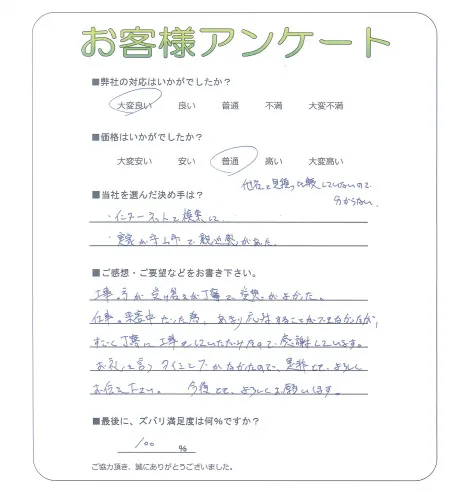 お客様アンケート
■弊社の対応はいかがでしたか？
大変良い 良い 普通 不満 大変不満
■価格はいかがでしたか？
大変安い 安い 普通 高い 大変高い
他社と見積り比較していないので
分からない
■当社を選んだ決め手は？
・インターネットで検索して
・実家が で親近感があった。
■ご感想・ご要望などをお書き下さい。
工事の方が受け答えが丁寧で感じがよかった。
仕事の 中だった為、あまり応対することができなかったが、
すごく丁寧に工事をしていただけたので感謝しています。
お礼を言うタイミングがなかったので、是非とも、よろしく
お伝え下さい。 今後とも、よろしくお願いします。
■最後に、ズバリ満足度は何%ですか？
100 %
ご協力頂き、誠にありがとうございました。